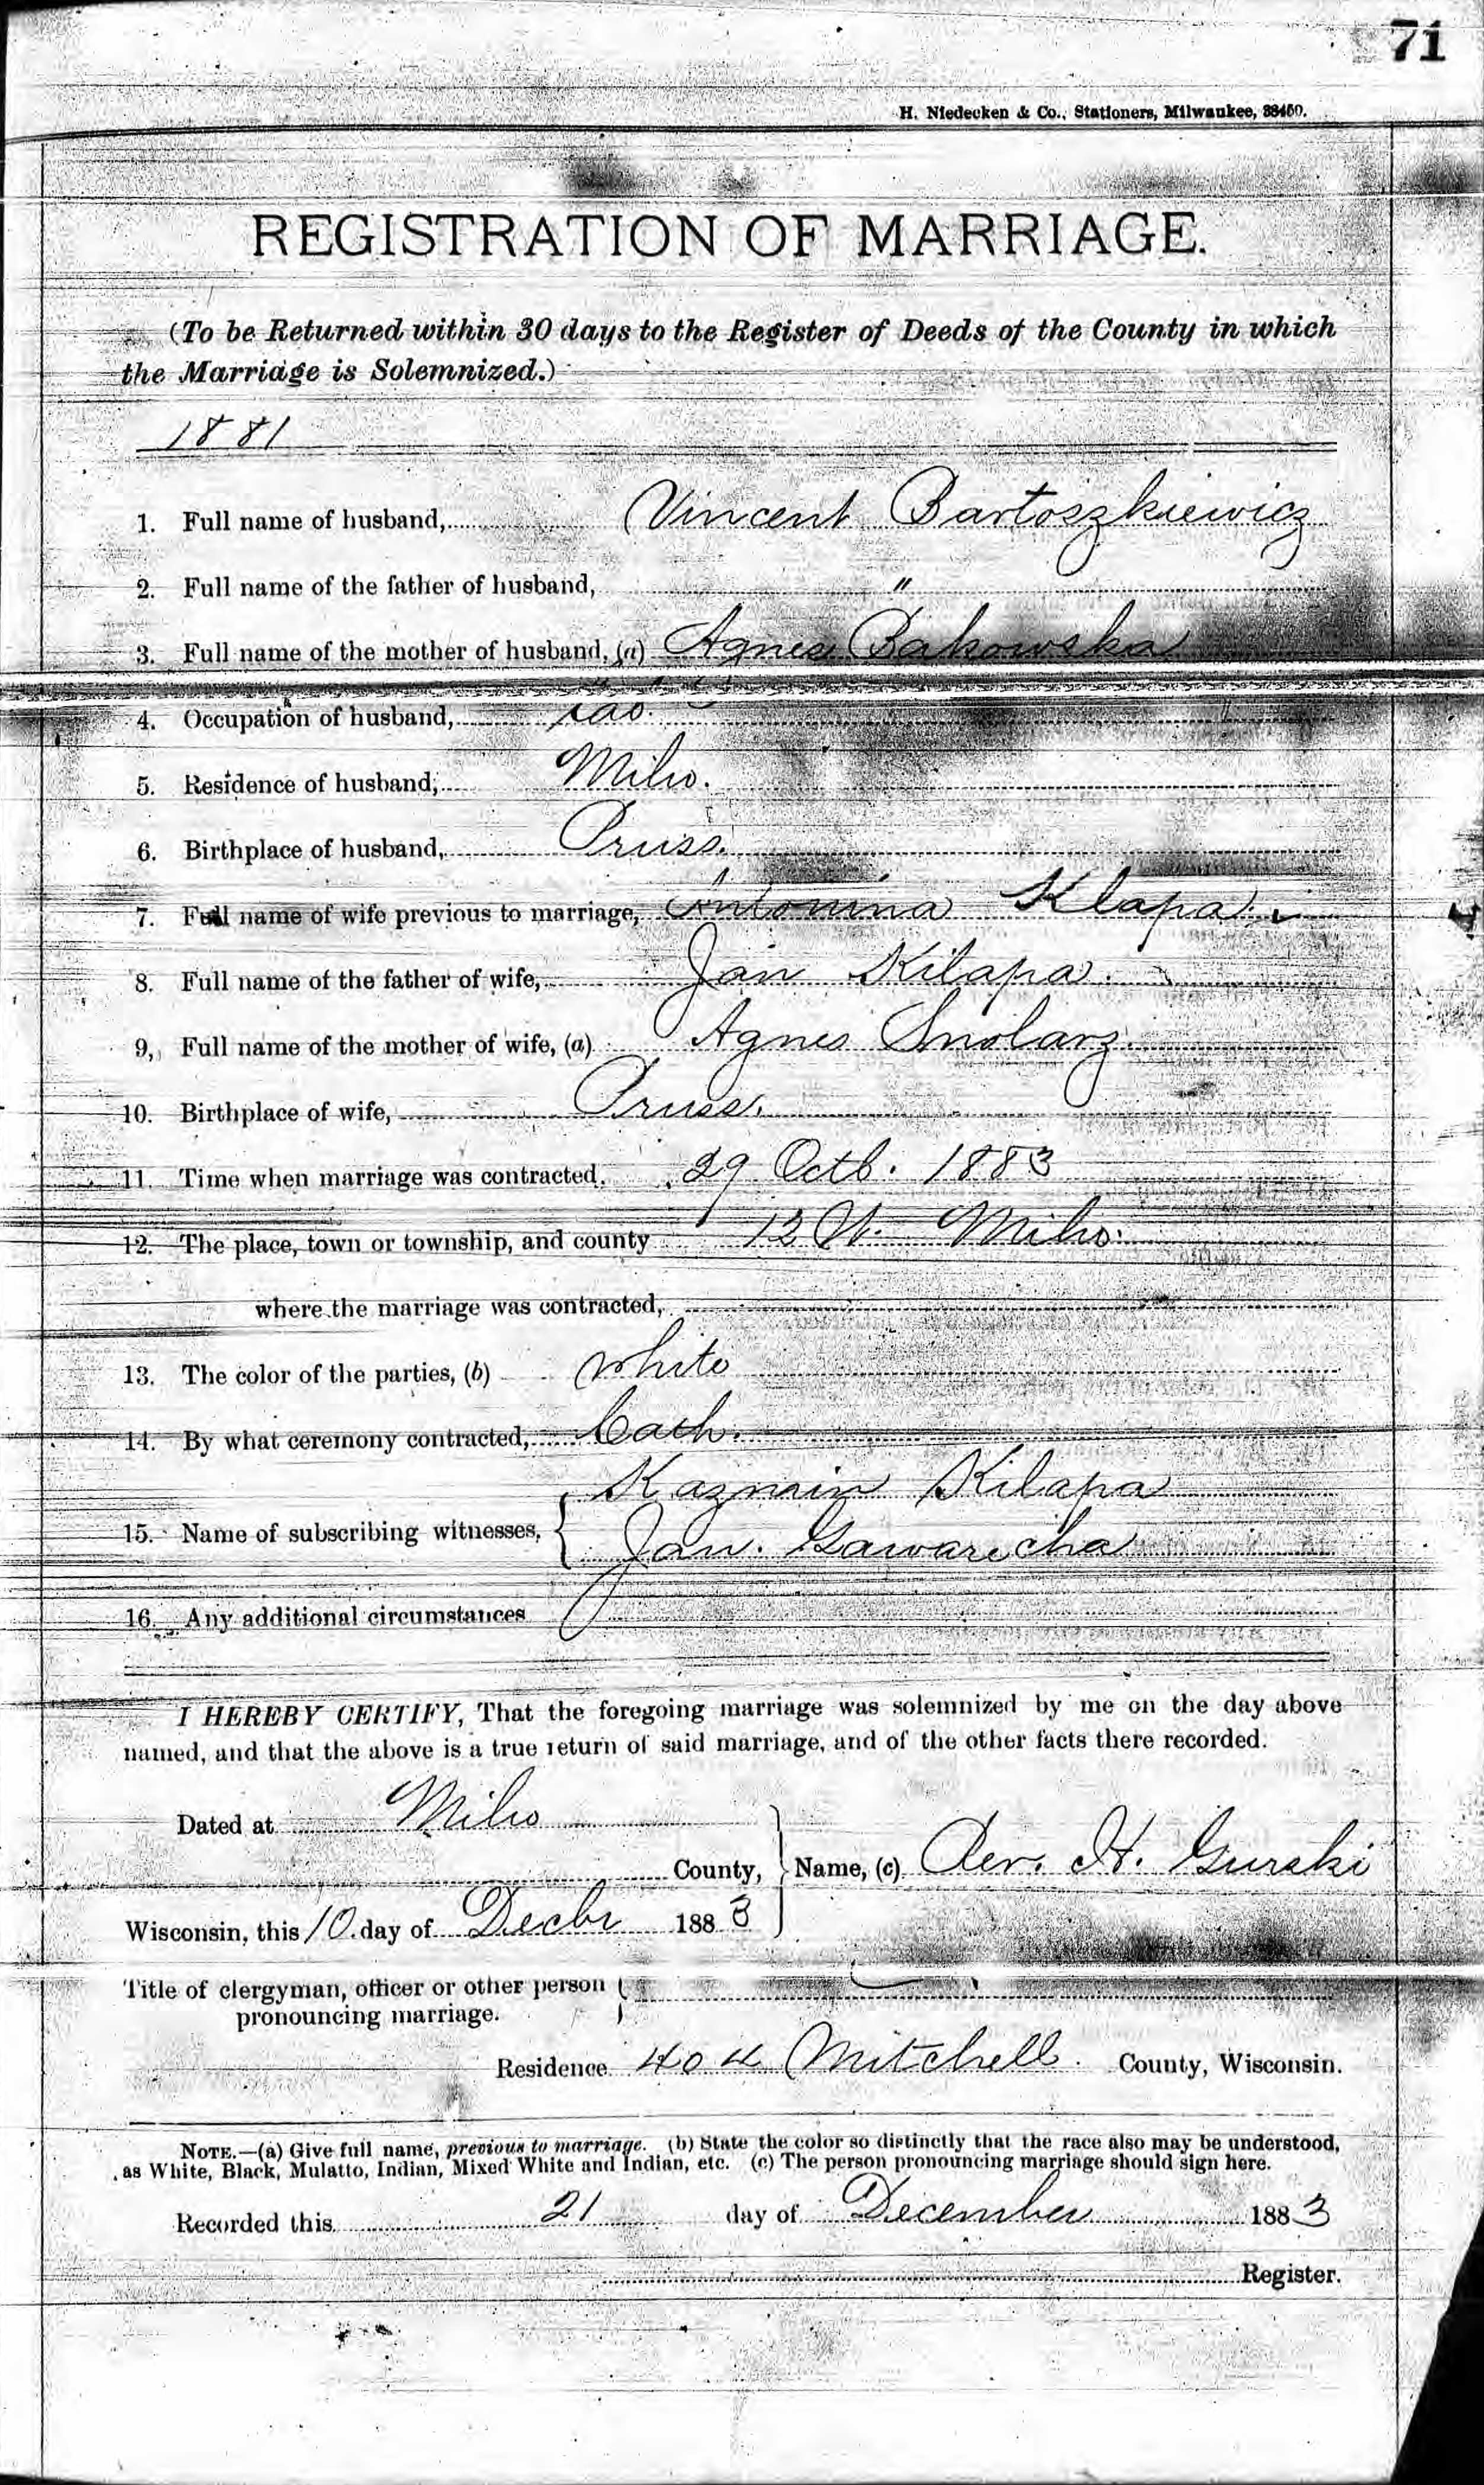 71
H. Niedecken & Co., Stationers, Milwaukee, 38450.
REGISTRATION OF MARRIAGE.
(To be Returned within 30 days to the Register of Deeds of the County in which
the Marriage is Solemnized.)
1881
1. Full name of husband, Vincent Bartoszkiewicz
2. Full name of the father of husband, "
3. Full name of the mother of husband, (a) Agnes Bakowska
4. Occupation of husband, Lab.
5. Residence of husband, Milw.
6. Birthplace of husband, Pruss.
7. Full name of wife previous to marriage, Antonina Klapa
8. Full name of the father of wife, Jan Kilapa.
9, Full name of the mother of wife, (a) Agnes Smolarz.
10. Birthplace of wife, Pruss.
11. Time when marriage was contracted, 29 Octb. 1883
12. The place, town or township, and county 12 W. Milw.
where the marriage was contracted,
13. The color of the parties, (b) white
14. By what ceremony contracted, Cath.
Kazmir Kilapa
15. Name of subscribing witnesses,
Jan. Gawarecha
16. Any additional circumstances
I HEREBY CERTIFY, That the foregoing marriage was solemnized by me on the day above
named, and that the above is a true return of said marriage, and of the other facts there recorded.
Dated at Milw
County, Name, (c) Rev. H. Gurski
Wisconsin, this 10. day of Decbr 1883
Title of clergyman, officer or other person
pronouncing marriage.
Residence 404 Mitchell. County, Wisconsin.
NOTE.—(a) Give full name, previous to marriage. (b) State the color so distinctly that the race also may be understood,
as White, Black, Mulatto, Indian, Mixed White and Indian, etc. (c) The person pronouncing marriage should sign here.
Recorded this 21 day of December 1883
Register.